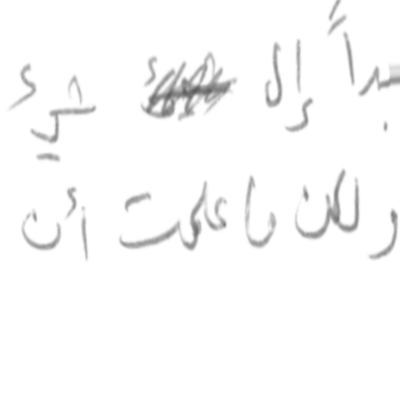 إلى شيء
ولكن ما علمت أن